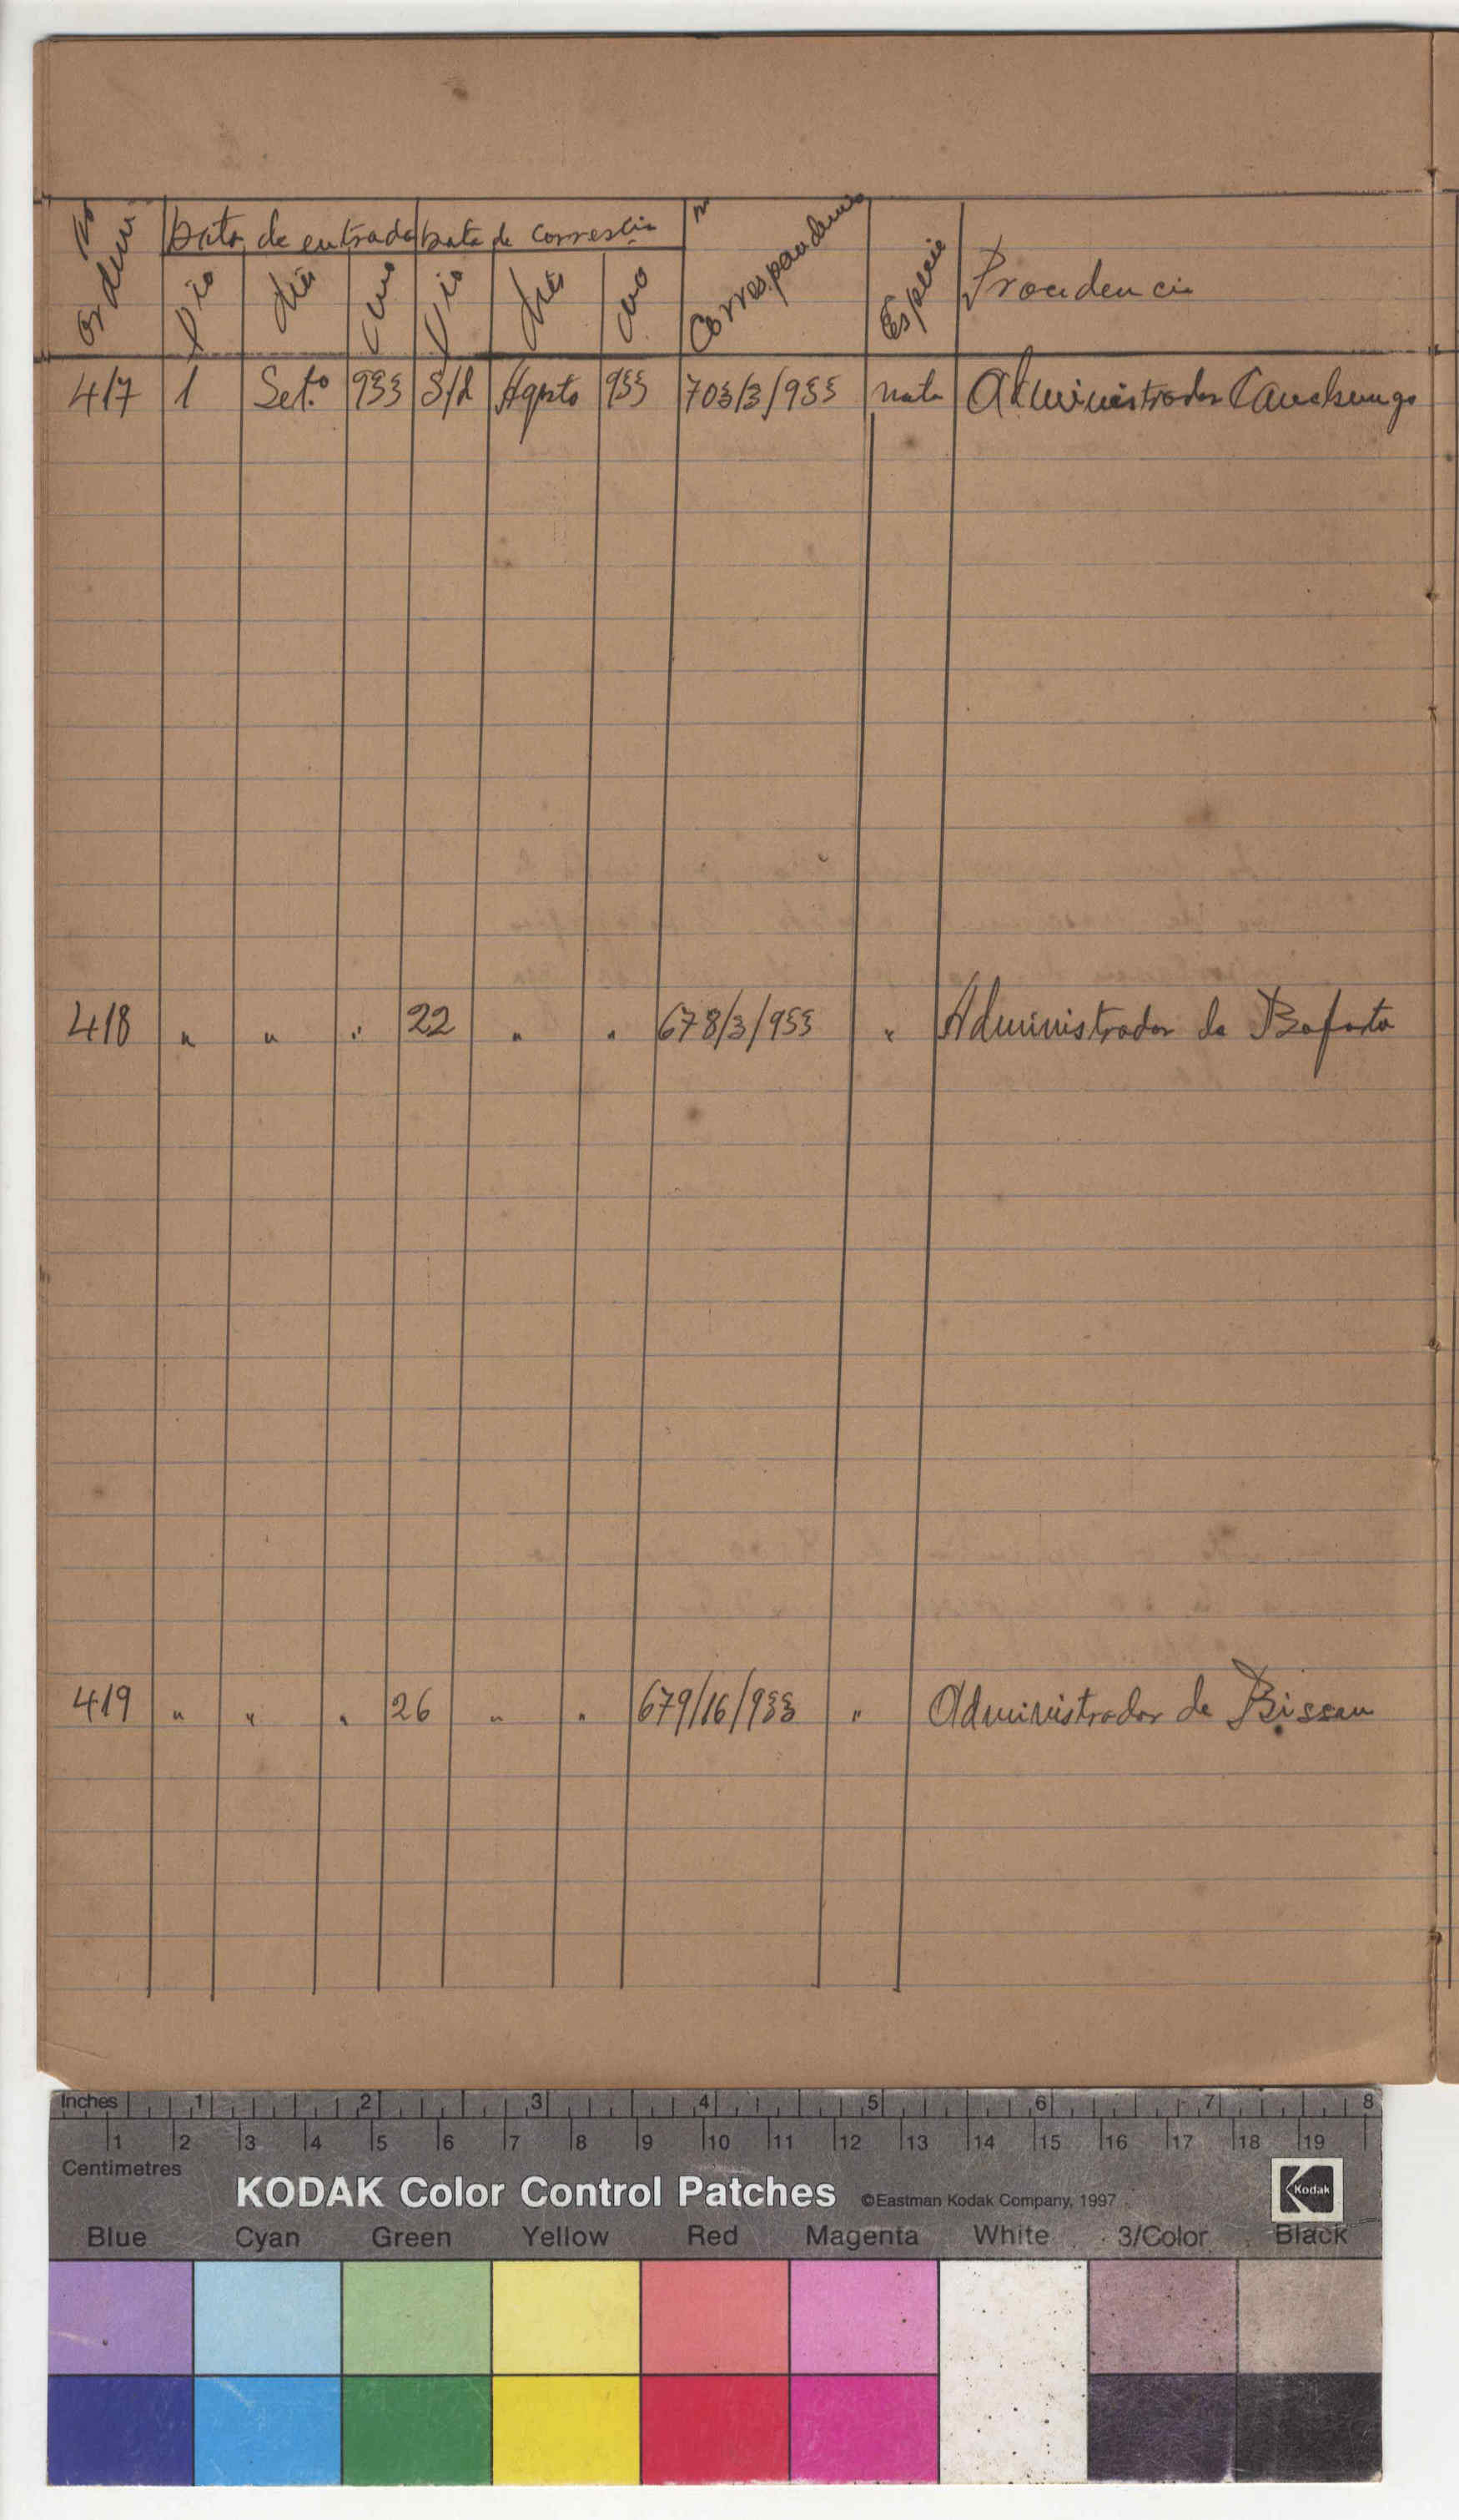 Nº ordem Data de entrada Data de correscia nº Correspondencia Especie Procedencia
Dia Mês Ano Dia Mês Ano
417 1 Set.º 955 S/d Agosto 955 703/3/955 nota Administrador Canchungo
418 " " " 22 " " 678/3/955 " Administrador de Bafata
419 " " " 26 " " 679/16/955 " Administrador de Bissau
Inches 1 2 3 4 5 6 7 8
1 2 3 4 5 6 7 8 9 10 11 12 13 14 15 16 17 18 19
Centimetres
KODAK Color Control Patches ©Eastman Kodak Company, 1997 Kodak
Blue Cyan Green Yellow Red Magenta White 3/Color Black